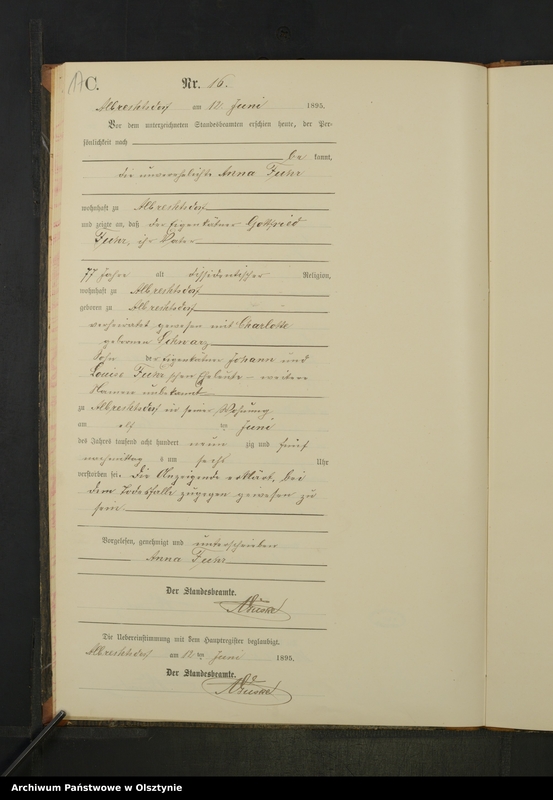 C. Nr. 16.
Albrechtsdorf am 12 Juni 1895.
Vor dem unterzeichneten Standesbeamten erschien heute, der Per-
sönlichkeit nach
be kannt,
die unverehelichte Anna Fuhr
wohnhaft zu Albrechtsdorf
und zeigte an, daß der Eigenkätner Gottfried
Fuhr, ihr Vater
77 Jahre alt dissidentischer Religion,
wohnhaft zu Albrechtsdorf
geboren zu Albrechtsdorf
verheirathet gewesen mit Charlotte
geborenen Schwarz
Sohn der Eigenkätner Johann und
Louise Fuhr'schen Eheleute – weitere
Namen unbekannt
zu Albrechtsdorf in seiner Wohnung
am elf ten Juni
des Jahres tausend acht hundert neun zig und fünf
nachmittag s um sechs Uhr
verstorben sei. Die Anzeigende erklärt, bei
dem Todesfalle zugegen gewesen zu
sein
Vorgelesen, genehmigt und unterschrieben
Anna Fuhr
Der Standesbeamte.
Die Uebereinstimmung mit dem Hauptregister beglaubigt.
Albrechtsdorf am 12 ten Juni 1895.
Der Standesbeamte.
Archiwum Państwowe w Olsztynie